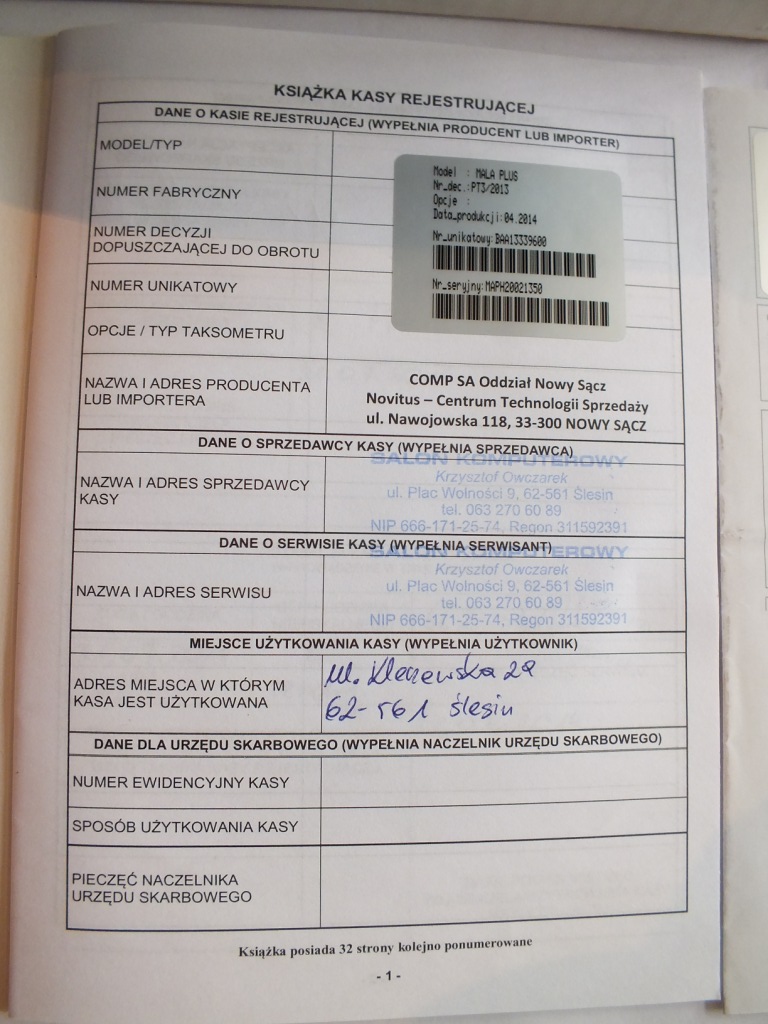 KSIĄŻKA KASY REJESTRUJĄCEJ
DANE O KASIE REJESTRUJĄCEJ (WYPEŁNIA PRODUCENT LUB IMPORTER)
MODEL/TYP
NUMER FABRYCZNY
NUMER DECYZJI
DOPUSZCZAJĄCEJ DO OBROTU
NUMER UNIKATOWY
OPCJE / TYP TAKSOMETRU
Model : MALA PLUS
Nr_dec.:PT3/2013
Opcje :
Data_produkcji:04.2014
Nr_unikatowy:BAA13339600
Nr_seryjny:MAPH20021350
NAZWA I ADRES PRODUCENTA
LUB IMPORTERA
COMP SA Oddział Nowy Sącz
Novitus – Centrum Technologii Sprzedaży
ul. Nawojowska 118, 33-300 NOWY SĄCZ
DANE O SPRZEDAWCY KASY (WYPEŁNIA SPRZEDAWCA)
NAZWA I ADRES SPRZEDAWCY
KASY
SALON KOMPUTEROWY
Krzysztof Owczarek
ul. Plac Wolności 9, 62-561 Ślesin
tel. 063 270 60 89
NIP 666-171-25-74, Regon 311592391
DANE O SERWISIE KASY (WYPEŁNIA SERWISANT)
NAZWA I ADRES SERWISU
SALON KOMPUTEROWY
Krzysztof Owczarek
ul. Plac Wolności 9, 62-561 Ślesin
tel. 063 270 60 89
NIP 666-171-25-74, Regon 311592391
MIEJSCE UŻYTKOWANIA KASY (WYPEŁNIA UŻYTKOWNIK)
ADRES MIEJSCA W KTÓRYM
KASA JEST UŻYTKOWANA
ul. Kleczewska 2a
62-561 Ślesin
DANE DLA URZĘDU SKARBOWEGO (WYPEŁNIA NACZELNIK URZĘDU SKARBOWEGO)
NUMER EWIDENCYJNY KASY
SPOSÓB UŻYTKOWANIA KASY
PIECZĘĆ NACZELNIKA
URZĘDU SKARBOWEGO
Książka posiada 32 strony kolejno ponumerowane
- 1 -